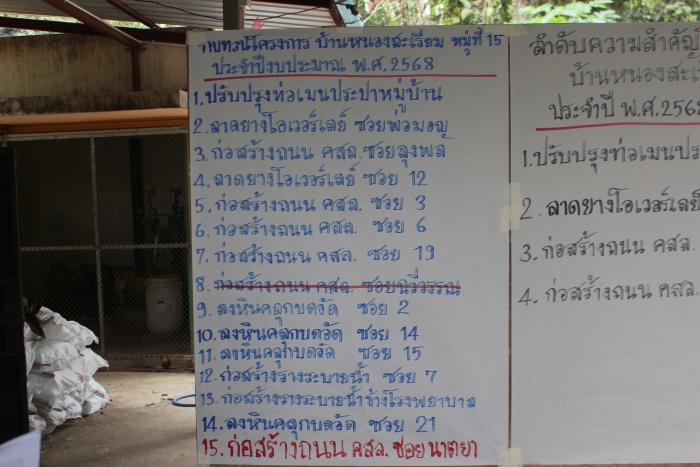 ทบทวนโครงการ บ้านหนองสะเรียม หมู่ที่ 15
ประจำปีงบประมาณ พ.ศ.2568
1.ปรับปรุงท่อเมนประปาหมู่บ้าน
2.ลาดยางโอเวอร์เลย์ ซอยพ่อมอญ
3.ก่อสร้างถนน คสล.ซอยลุงพล
4.ลาดยางโอเวอร์เลย์ ซอย 12
5.ก่อสร้างถนน คสล. ซอย 3
6.ก่อสร้างถนน คสล. ซอย 6
7.ก่อสร้างถนน คสล. ซอย 19
8.ก่อสร้างถนน คสล. ซอยฉวีวรรณ
9.ลงหินคลุกบดอัด ซอย 2
10.ลงหินคลุกบดอัด ซอย 14
11.ลงหินคลุกบดอัด ซอย 15
12.ก่อสร้างรางระบายน้ำ ซอย 7
13.ก่อสร้างรางระบายน้ำข้างโรงพยาบาล
14.ลงหินคลุกบดอัด ซอย 21
15.ก่อสร้างถนน คสล.ซอยนาตยา
ลำดับความสำคัญ
บ้านหนองสะ
ประจำปี พ.ศ.256
1.ปรับปรุงท่อเมนประ
2.ลาดยางโอเวอร์เลย์
3.ก่อสร้างถนน คสล.
4.ก่อสร้างถนน คสล.